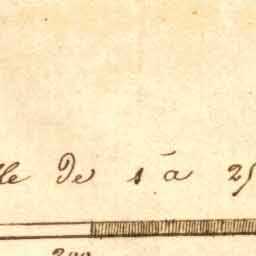 lle de 1 à 25
200